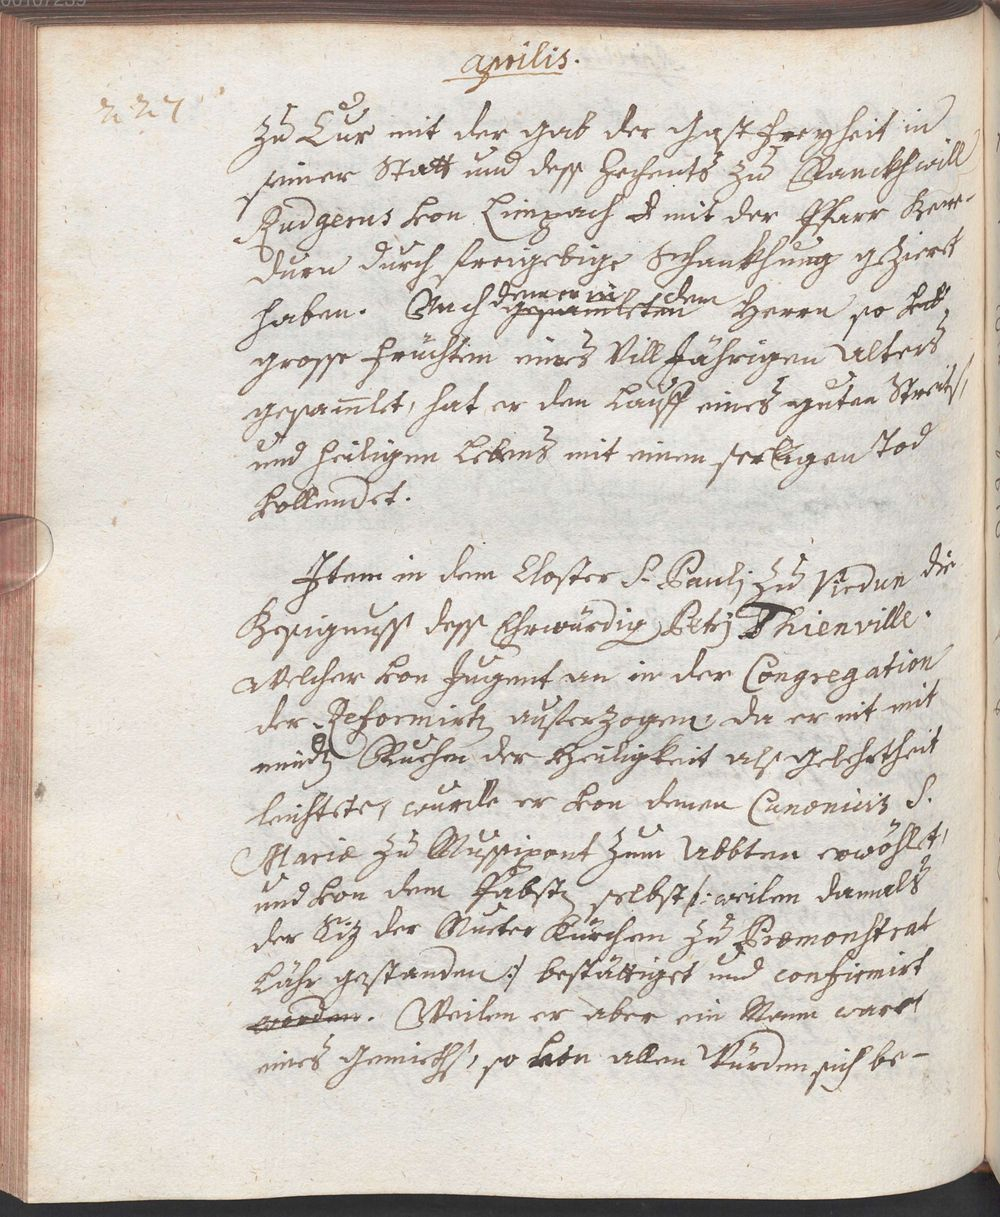 00107239
aprilis.
227
Zu Cur mit der gab der Gastfreyheit in
seiner Statt und dess Zechents zu Ranckhwill
Rudgerus von Limpach & mit der Pfarr
durn durch freigebige Schankhung geziert
haben. Nachdem er in dem Herrn so
grosse früchten eines Vill Jährigen Alters
gesamlet, hat er den Lauff eines guten Streits,
und heiligen Lebens mit einem seeligen Tod
vollendet.
Item in dem Closter S. Paulj zu Virdun die
Besignuss dess Ehrwürdig Petrj Thienville.
Welcher von Jugent an in der Congregation
der Reformirtn auferzogen, da er nit mit
mindn Ruhm der Heiligkeit als gelehrtheit
leichtete, wurde er von denen Canonicis S.
Mariæ zu Mussipont zum Abbten erwöhlet,
und von dem Pabstn selbst /: weilen damals
der Siz der Mutter Kürchen zu Præmonstrat
Lähr gestanden :/ bestättiget und confirmirt
worden. Weilen er aber ein Mann ware
eines gemieths, so von allen Würden sich be-